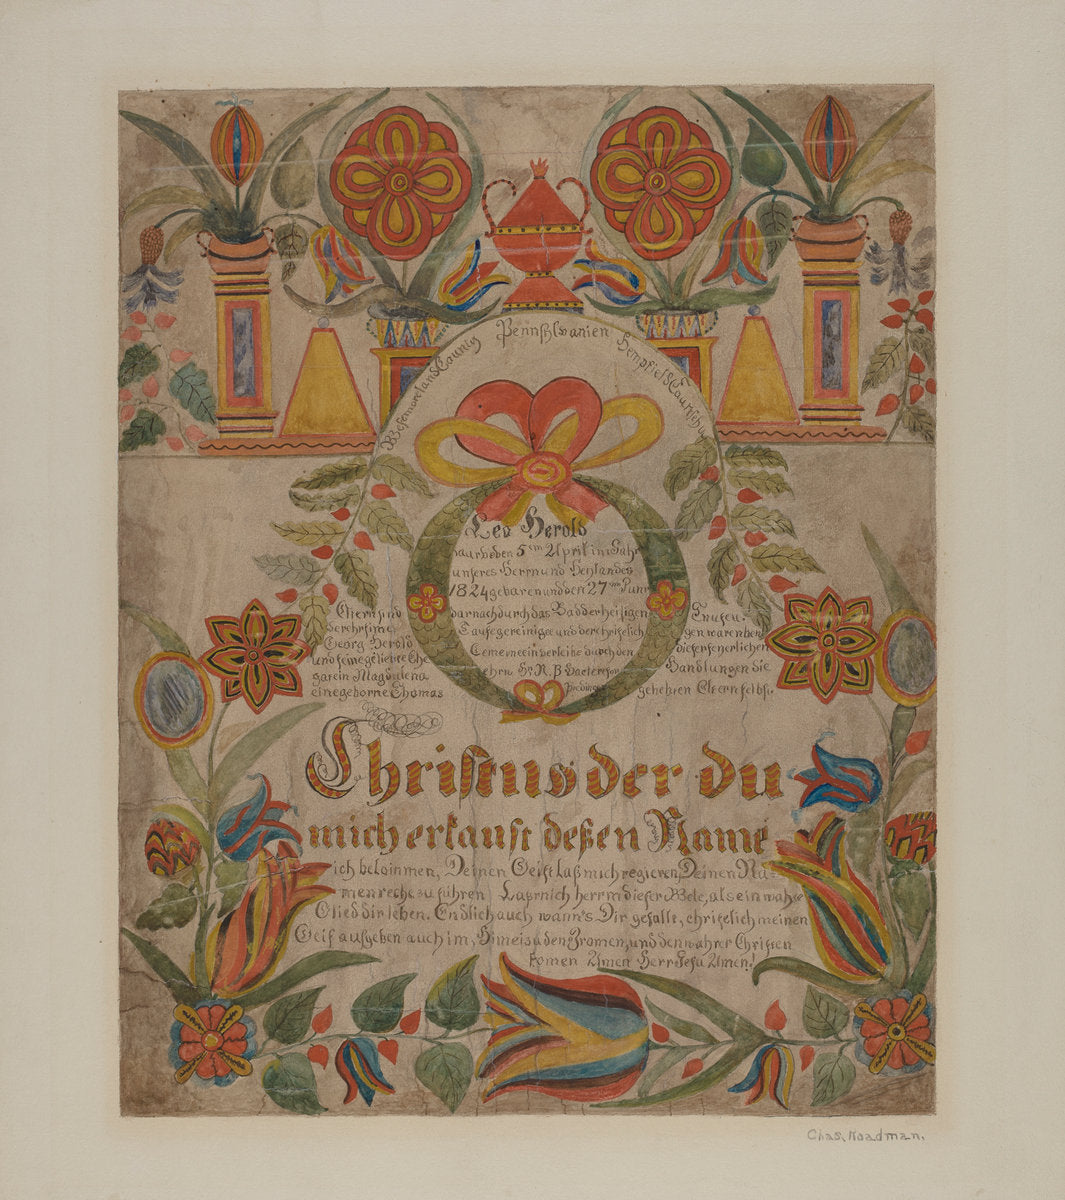 Westmoreland County Pennßlvanien Hempfield
Leo Herold
5ten April im Jahr
unseres Herrn und Heylandes
1824 geboren und den 27ten Juni
darnach durch das Bad der heiligen
Taufe gereiniget und der christlich
durch den
Eltern sind
Georg Herold
und seine geliebte Ehe
garein Magdalena
eine geborne Thomas
Handlungen die
Christus der du
mich erkauft deßen Name
ich bekommen, Deinen Geist laß mich regieren, Deinen Na=
men recht zu führen Laß mich herr in dieser Welt, als ein wahre
Glied dir leben. Endlich auch wann's Dir gefällt, christlich meinen
Geist aufgeben auch im, Himel zu den Fromen, und den wahrer Christen
komen Amen Herr Jesu Amen!
Chas. Roadman.